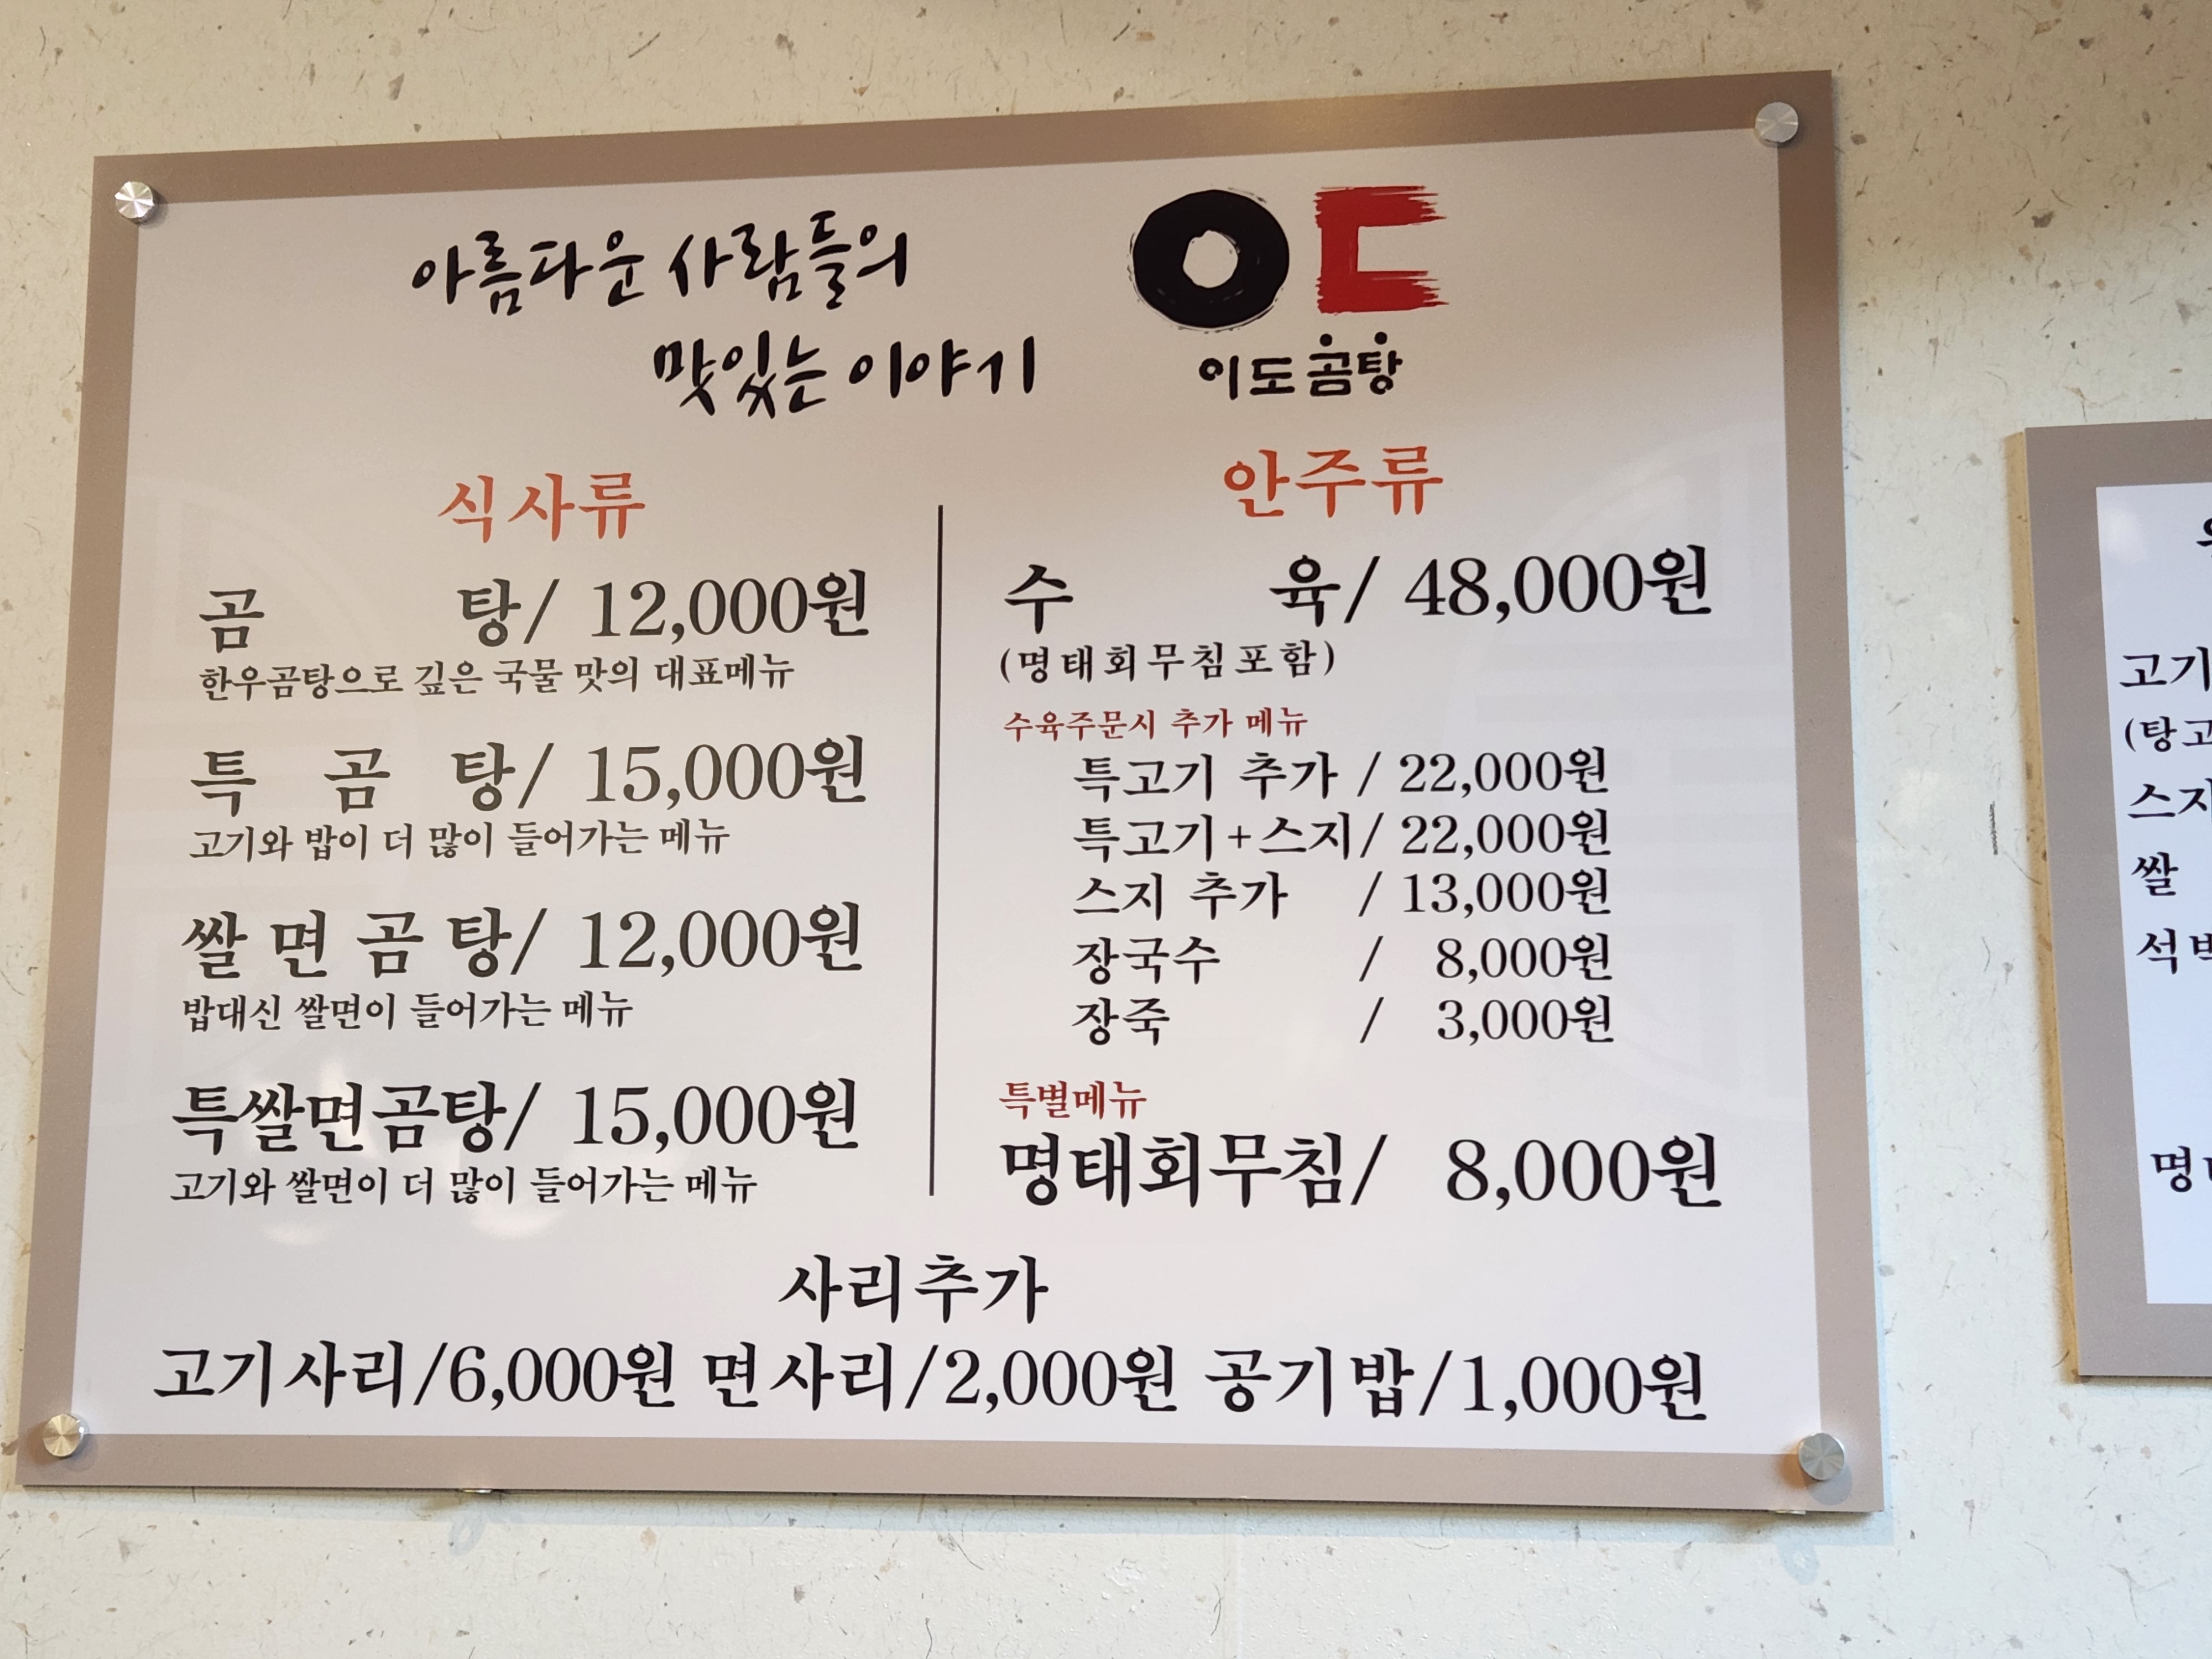 아름다운 사람들의
맛있는 이야기
ㅇㄷ
이도곰탕
식사류
곰 탕/ 12,000원
한우곰탕으로 깊은 국물 맛의 대표메뉴
특 곰 탕/ 15,000원
고기와 밥이 더 많이 들어가는 메뉴
쌀 면 곰 탕/ 12,000원
밥대신 쌀면이 들어가는 메뉴
특쌀면곰탕/ 15,000원
고기와 쌀면이 더 많이 들어가는 메뉴
안주류
수 육/ 48,000원
(명태회무침포함)
수육주문시 추가 메뉴
특고기 추가 / 22,000원
특고기+스지/ 22,000원
스지 추가 / 13,000원
장국수 / 8,000원
장죽 / 3,000원
특별메뉴
명태회무침/ 8,000원
사리추가
고기사리/6,000원 면사리/2,000원 공기밥/1,000원
고기
(탕고
스지
쌀
석
명